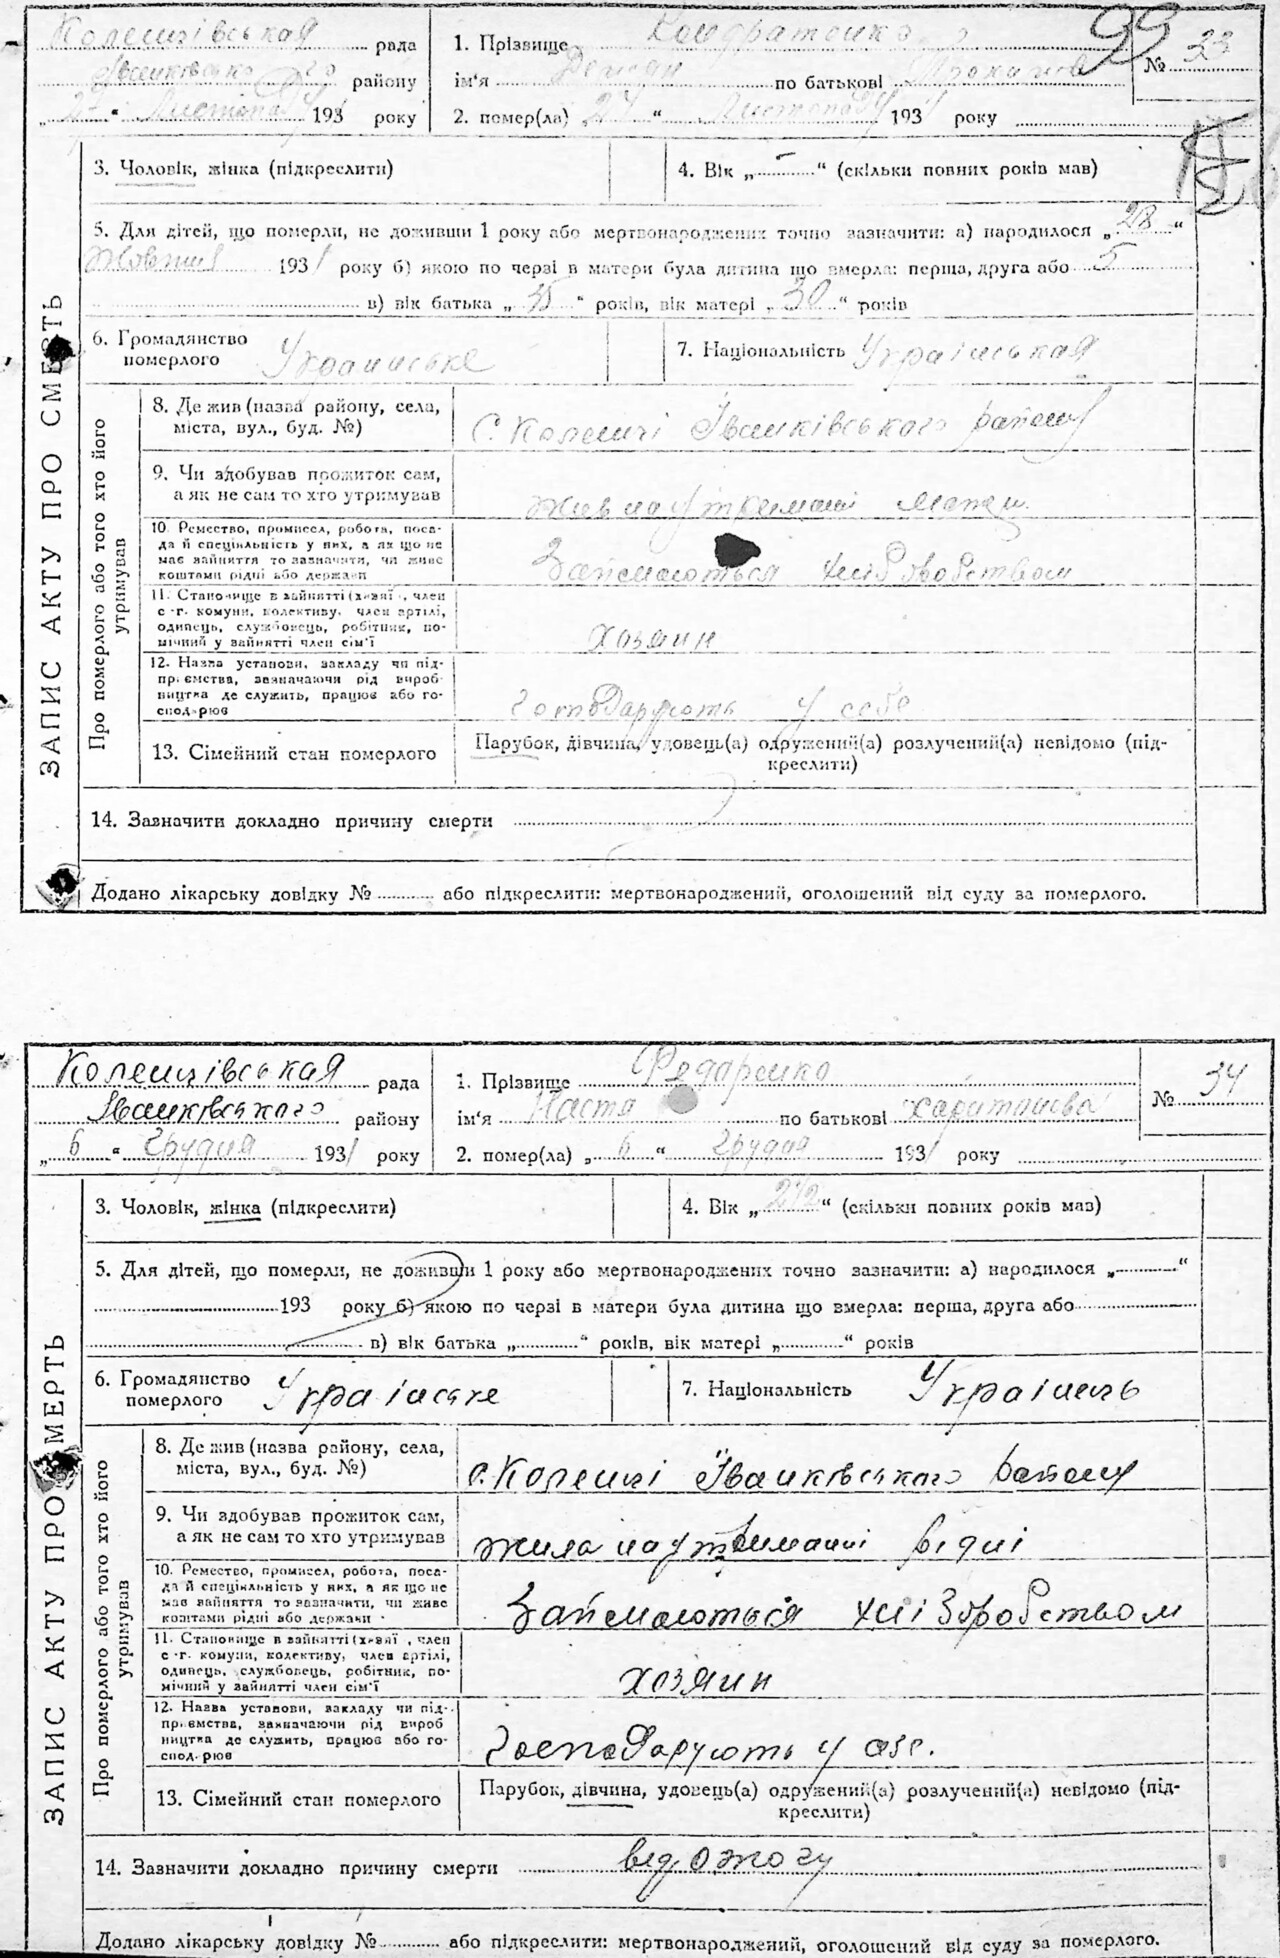 Коленцівськая рада
Іванківського району
„27“ Листопаду 1931 року
1. Прізвище Кондратенко
ім‘я Демян по батькові
2. помер(ла) „27“ Листопаду 1931 року
99
№ 33
3. Чоловік, жінка (підкреслити)
4. Вік „ - “ (скільки повних років мав)
5. Для дітей, що померли, не доживши 1 року або мертвонароджених точно зазначити: а) народилося „28“
Жовтня 1931 року б) якою по черзі в матери була дитина що вмерла: перша, друга або 5
в) вік батька „35“ років, вік матері „30“ років
ЗАПИС АКТУ ПРО СМЕРТЬ
6. Громадянство
померлого Украинське
7. Національність Українськая
Про померлого або того хто його
утримував
8. Де жив (назва району, села,
міста, вул., буд. №)
с. Коленці Іванківського району
9. Чи здобував прожиток сам,
а як не сам то хто утримував
жив на утриманні матери
10. Ремество, промисел, робота, поса-
да й спеціяльність у них, а як що не
має зайняття то зазначити, чи живе
коштами рідні або держави
Займаються хліборобством
11. Становище в зайнятті (хазяї , член
с.-г. комуни, колективу, член артілі,
одинець, службовець, робітник, по-
мічний у зайнятті член сім‘ї
хозяин
12. Назва установи, закладу чи під-
приємства, зазначаючи рід вироб-
ництва де служить, працює або го-
сподарює
господарують у себе
13. Сімейний стан померлого
Парубок, дівчина, удовець(а) одружений(а) розлучений(а) невідомо (під-
креслити)
14. Зазначити докладно причину смерти
Додано лікарську довідку № або підкреслити: мертвонароджений, оголошений від суду за померлого.
Коленцівськая рада
Іванківського району
„6“ Грудня 1931 року
1. Прізвище Федоренко
ім‘я Настя по батькові Харитонова
2. помер(ла) „6“ Грудня 1931 року
№ 34
3. Чоловік, жінка (підкреслити)
4. Вік „2 1/2“ (скільки повних років мав)
5. Для дітей, що померли, не доживши 1 року або мертвонароджених точно зазначити: а) народилося „ “
193 року б) якою по черзі в матери була дитина що вмерла: перша, друга або
в) вік батька „ “ років, вік матері „ “ років
ЗАПИС АКТУ ПРО СМЕРТЬ
6. Громадянство
померлого Украінське
7. Національність Українець
Про померлого або того хто його
утримував
8. Де жив (назва району, села,
міста, вул., буд. №)
с. Коленці Іванківського району
9. Чи здобував прожиток сам,
а як не сам то хто утримував
жила на утриманні рідні
10. Ремество, промисел, робота, поса-
да й спеціяльність у них, а як що не
має зайняття то зазначити, чи живе
коштами рідні або держави
Займаються хлі боробством
11. Становище в зайнятті (хазяї , член
с.-г. комуни, колективу, член артілі,
одинець, службовець, робітник, по-
мічний у зайнятті член сім‘ї
хозяин
12. Назва установи, закладу чи під-
приємства, зазначаючи рід вироб
ництва де служить, працює або го-
сподарює
Господарують у себе.
13. Сімейний стан померлого
Парубок, дівчина, удовець(а) одружений(а) розлучений(а) невідомо (під-
креслити)
14. Зазначити докладно причину смерти від ожогу
Додано лікарську довідку № або підкреслити: мертвонароджений, оголошений від суду за померлого.